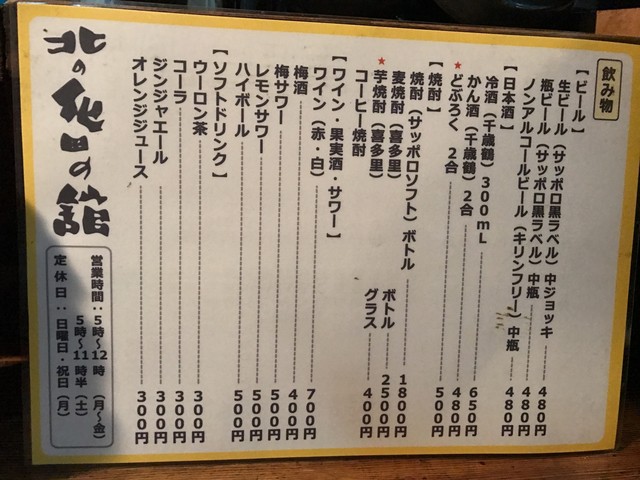 飲み物
【ビール】
生ビール（サッポロ黒ラベル）中ジョッキ 480円
瓶ビール（サッポロ黒ラベル）中瓶 480円
ノンアルコールビール（キリンフリー）中瓶 480円
【日本酒】
冷酒（千歳鶴）300mL 650円
かん酒（千歳鶴）2合 480円
★どぶろく 2合 500円
【焼酎】
焼酎（サッポロソフト）ボトル 1800円
麦焼酎（喜多里） ボトル 2500円
★芋焼酎（喜多里） グラス 400円
コーヒー焼酎
【ワイン・果実酒・サワー】
ワイン（赤・白） 700円
梅酒 400円
梅サワー 500円
レモンサワー 500円
ハイボール 500円
【ソフトドリンク】
ウーロン茶 300円
コーラ 300円
ジンジャエール 300円
オレンジジュース 300円
北の 田の館
営業時間：5時〜12時（月〜金）
5時〜11時半（土）
定休日：日曜日・祝日（月）